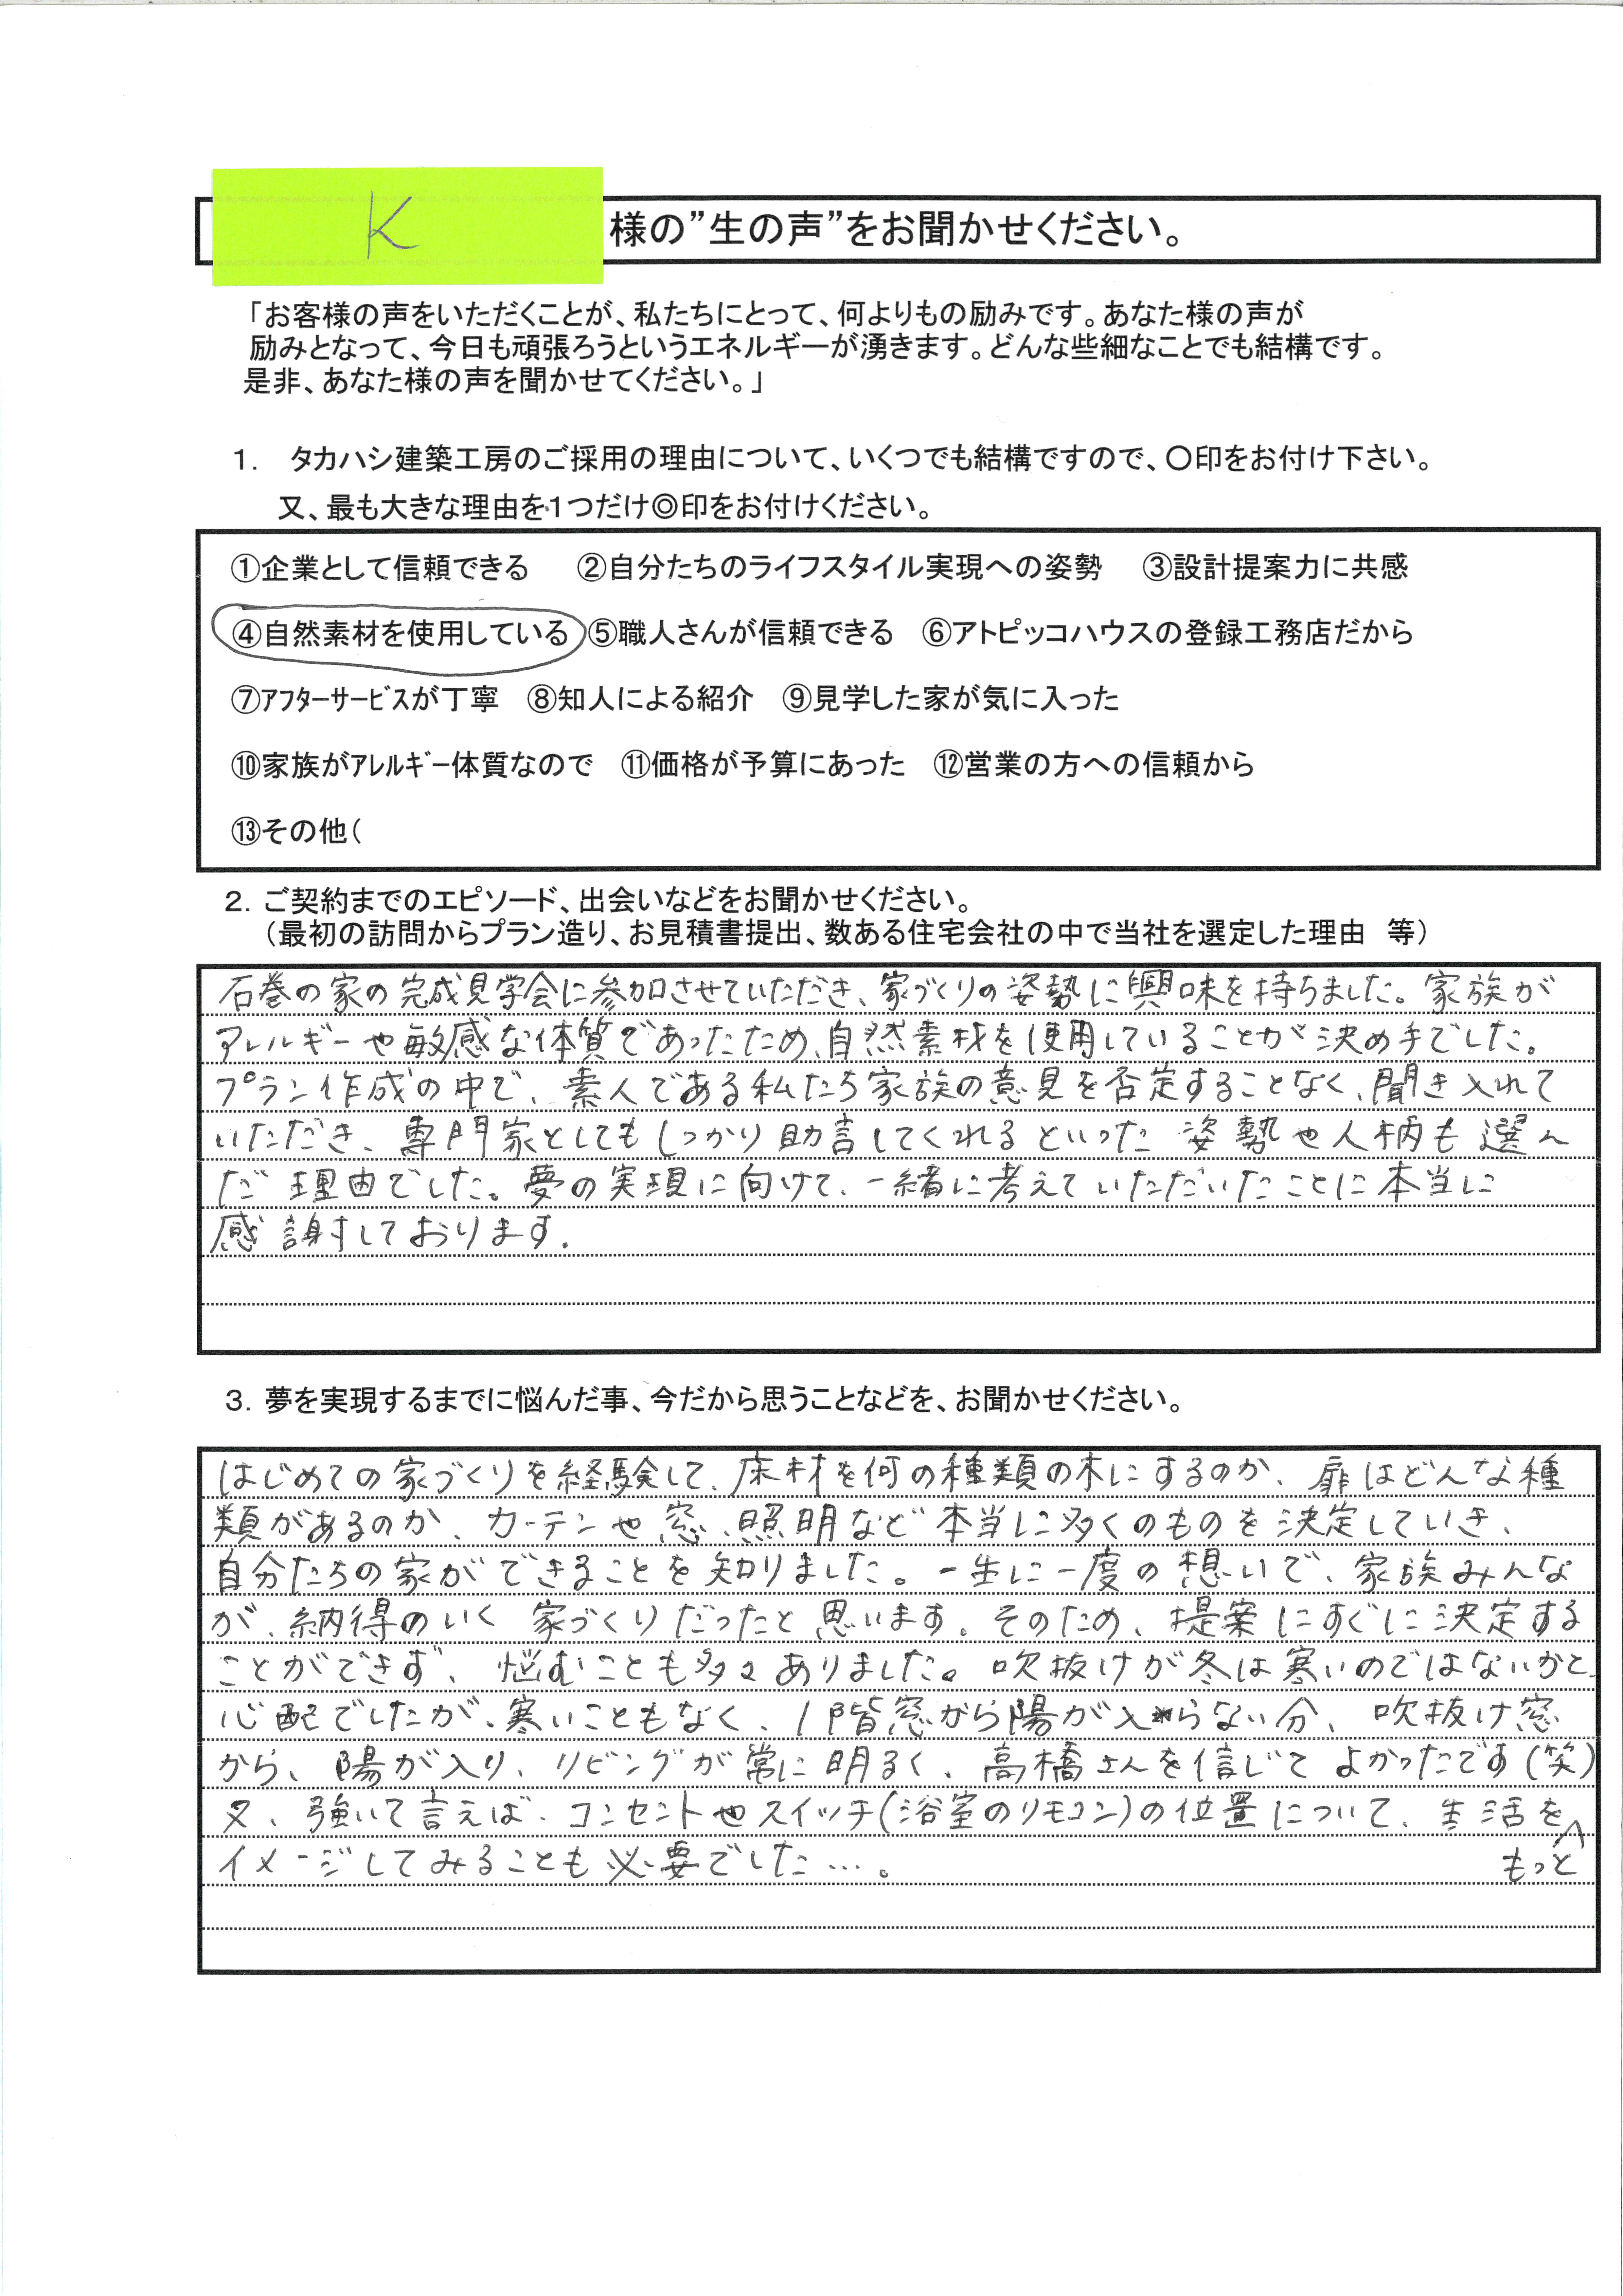 K 様の”生の声”をお聞かせください。
「お客様の声をいただくことが、私たちにとって、何よりもの励みです。あなた様の声が
励みとなって、今日も頑張ろうというエネルギーが湧きます。どんな些細なことでも結構です。
是非、あなた様の声を聞かせてください。」
1. タカハシ建築工房のご採用の理由について、いくつでも結構ですので、〇印をお付け下さい。
又、最も大きな理由を1つだけ◎印をお付けください。
①企業として信頼できる ②自分たちのライフスタイル実現への姿勢 ③設計提案力に共感
④自然素材を使用している ⑤職人さんが信頼できる ⑥アトピッコハウスの登録工務店だから
⑦アフターサービスが丁寧 ⑧知人による紹介 ⑨見学した家が気に入った
⑩家族がアレルギー体質なので ⑪価格が予算にあった ⑫営業の方への信頼から
⑬その他(
2. ご契約までのエピソード、出会いなどをお聞かせください。
(最初の訪問からプラン造り、お見積書提出、数ある住宅会社の中で当社を選定した理由 等)
石巻の家の完成見学会に参加させていただき、家づくりの姿勢に興味を持ちました。家族が
アレルギーや敏感な体質であったため、自然素材を使用していることが決め手でした。
プラン作成の中で、素人である私たち家族の意見を否定することなく、聞き入れて
いただき、専門家としてもしっかり助言してくれるといった姿勢や人柄も選ん
だ理由でした。夢の実現に向けて、一緒に考えていただいたことに本当に
感謝しております。
3. 夢を実現するまでに悩んだ事、今だから思うことなどを、お聞かせください。
はじめての家づくりを経験して、床材を何の種類の木にするのか、扉はどんな種
類があるのか、カーテンや窓、照明など本当に多くのものを決定していき、
自分たちの家ができることを知りました。一生に一度の想いで、家族みんな
が、納得のいく家づくりだったと思います。そのため、提案にすぐに決定する
ことができず、悩むことも多々ありました。吹抜けが冬は寒いのではないかと
心配でしたが、寒いこともなく、1階窓から陽が入らない分、吹抜け窓
から、陽が入り、リビングが常に明るく、高橋さんを信じてよかったです(笑)
又、強いて言えば、コンセントやスイッチ(浴室のリモコン)の位置について、生活を
イメージしてみることも必要でした…。 もっと